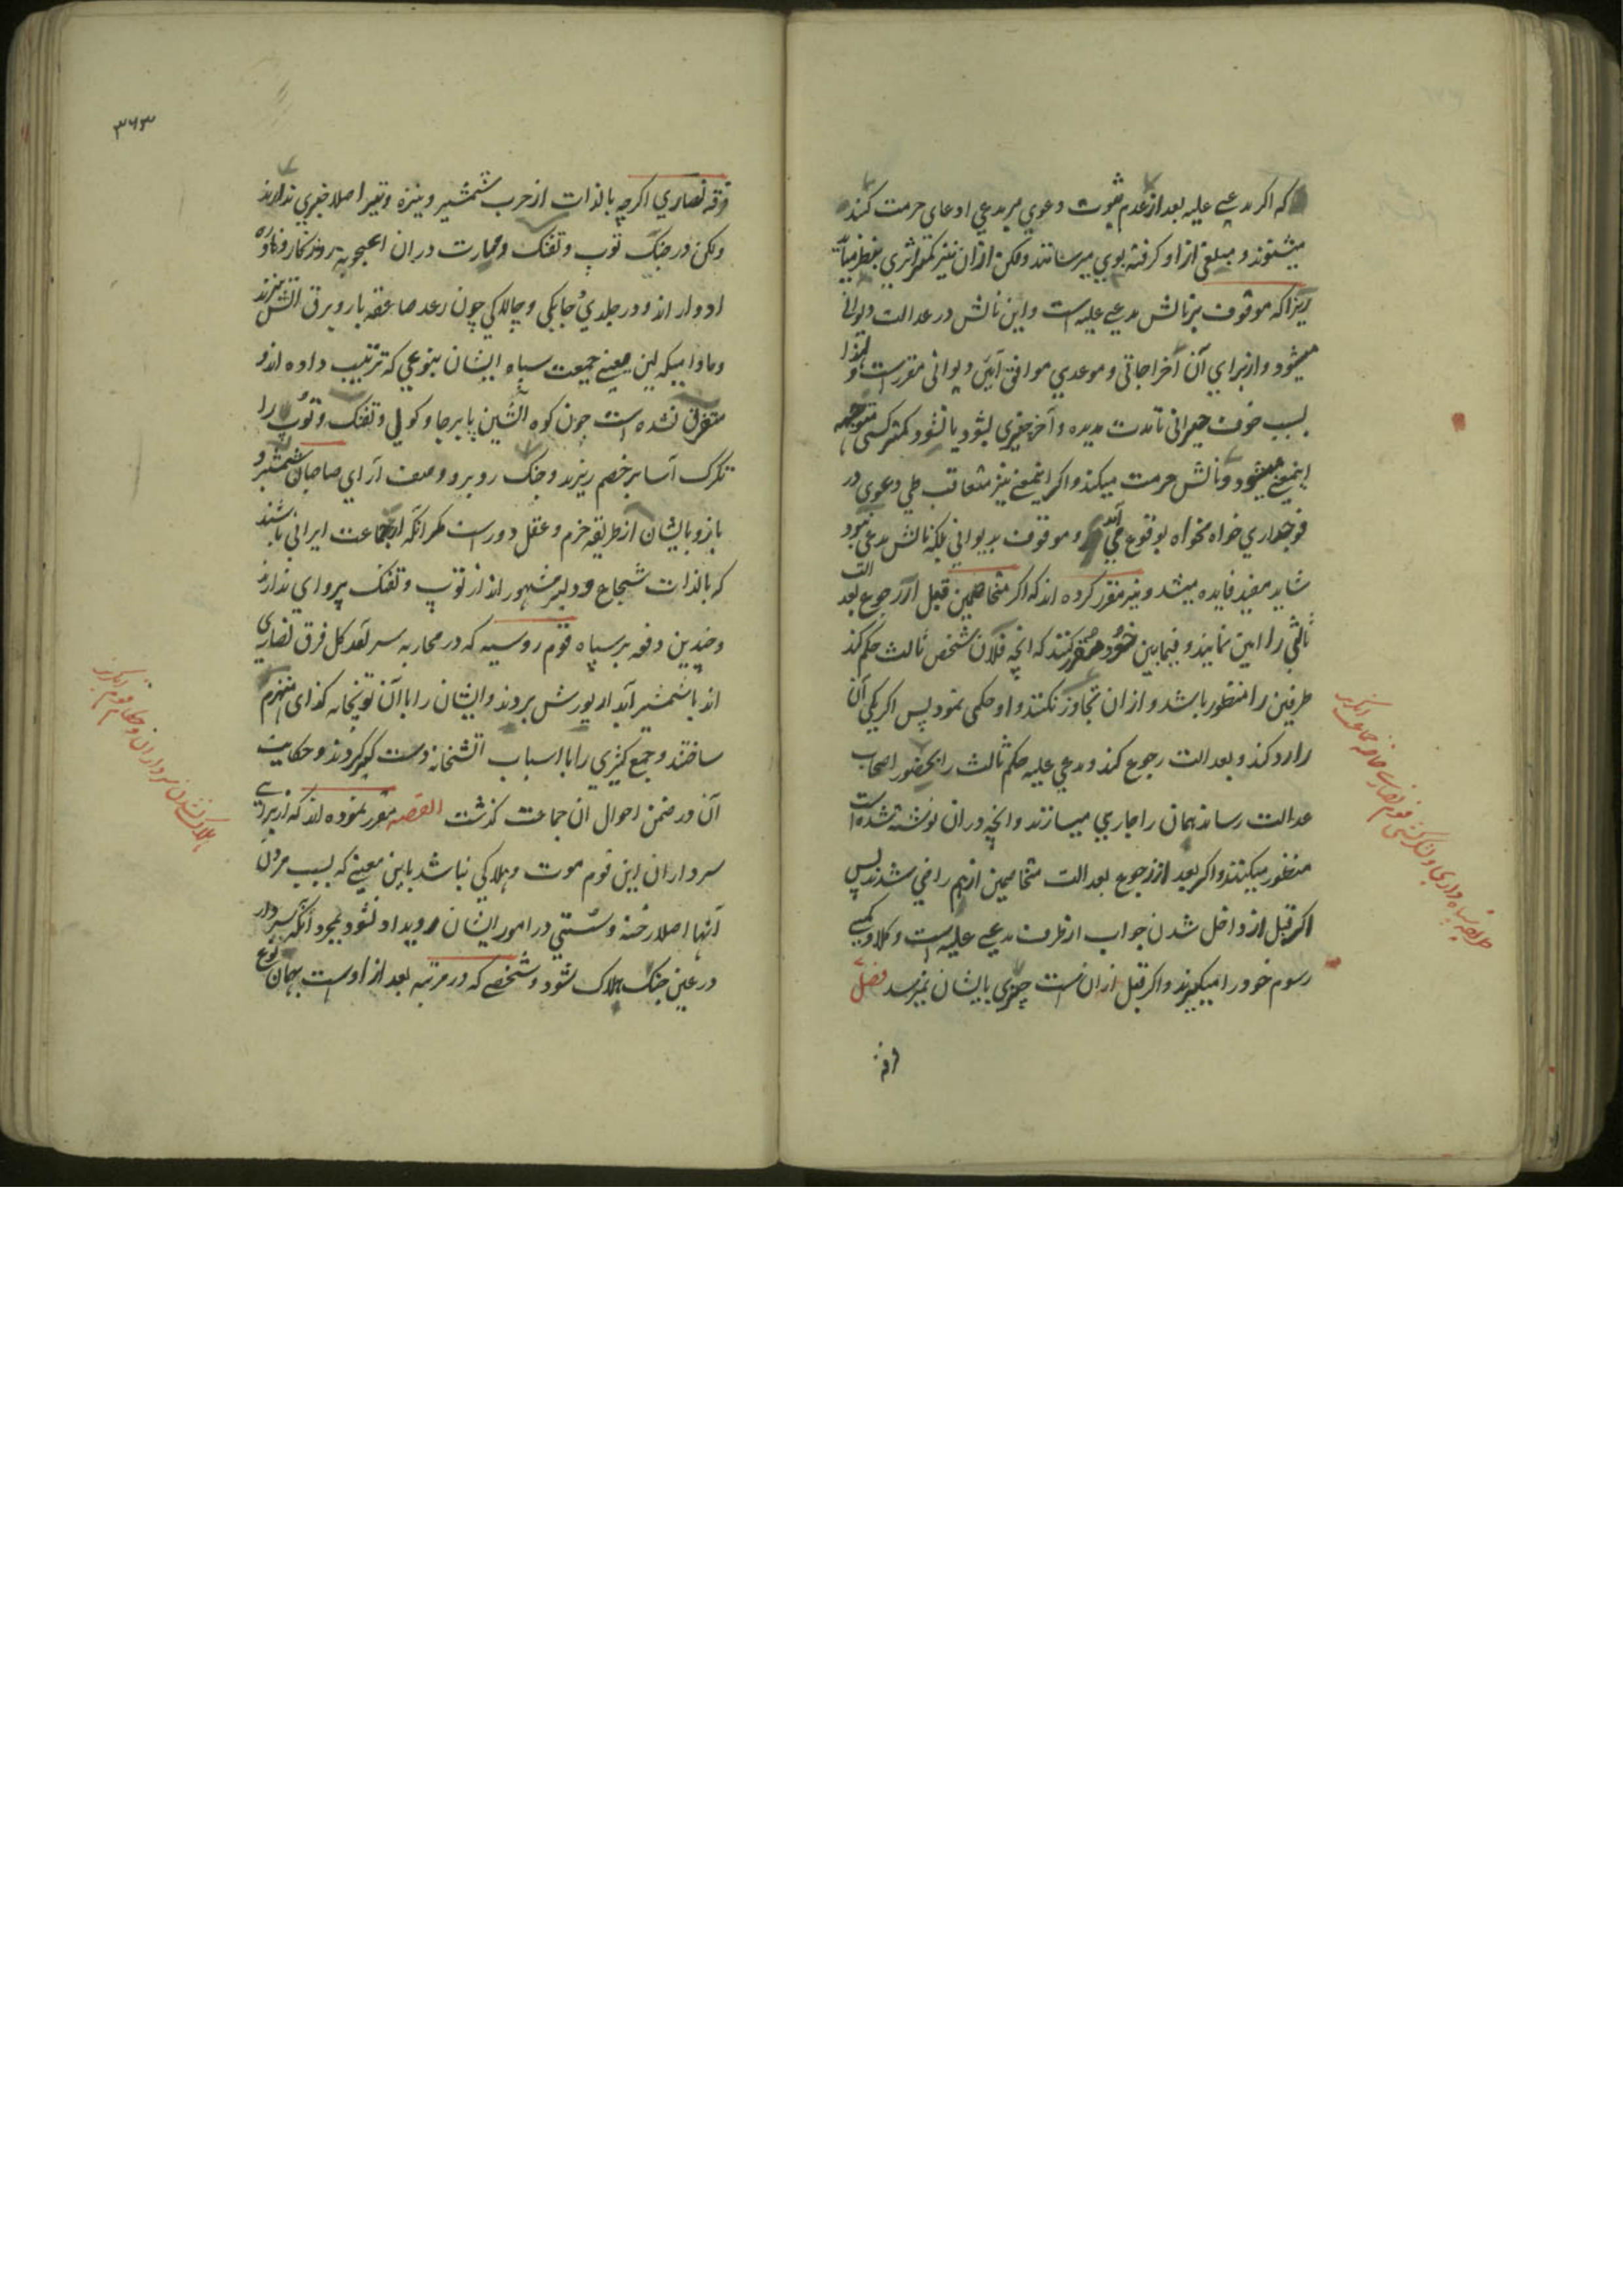 که اگر مدعی علیه بعد از عدم ثبوت دعوی بر مدعی ادعای حرمت کند
میشنوند و مبلغی از او گرفته بوی میرسانند ولکن از ان نیز کمتر اثری بنظر میآید
زیرا که موقوف بر نالش مدعی علیه است و این نالش در عدالت دیوانی
میشود و از برای آن اخراجاتی و موعدی موافق آیین دیوانی مقرر است و لهذا
بسبب خوف حیرانی تا مدت مدیده و آخر چیزی بشود یا نشود کمتر کسی متوجه
اینمعنی میشود و نالش حرمت میکند و اگر اینمعنی نیز متعاقب طی دعوی در
فوجداری خواه مخواه بوقوع می آمد و موقوف بدیوانی بلکه نالش مدعی نبود
شاید مفید فایده میشد و نیز مقرر کرده اند که اگر متخاصمین قبل از رجوع بعدالت
ثالثی را امین نمایند و فیمابین خود مقرر کنند که انچه فلان شخص ثالث حکم کند
طرفین را منظور باشد و از ان تجاوز نکنند و او حکمی نمود پس اگر یکی آن
را رد کند و بعدالت رجوع کند و مدعی علیه حکم ثالث را بحضور اصحاب
عدالت رساند همان را جاری میسازند و انچه در ان نوشته شده است
منظور میکنند و اگر بعد از رجوع بعدالت متخاصمین از هم راضی شدند پس
اگر قبل از داخل شدن جواب از طرف مدعی علیه است وکلا و کمپنی
رسوم خود را میگیرند و اگر قبل از ان است چیزی بایشان نمیرسد فصل
طریقه سپاه داری و لشکرکشی قوم نصاری خاصه جماعت انگریز
۳۶۳
فرقه نصاری اگرچه بالذات از حرب شمشیر و نیزه و تیر اصلا خبری ندارند
ولکن در جنگ توپ و تفنگ و مهارت در ان اعجوبه روزگار و نادره
ادوار اند و در جلدی و چابکی و چالاکی چون رعد صاعقه بار و برق آتش ریزند
و مادامیکه این معنی جمعیت سپاه ایشان بنوعی که ترتیب داده اند و
متفرق نشده است چون کوه آتشین پا برجا و گولی و تفنگ و توپ را
تگرگ آسا بر خصم ریزند و جنگ روبرو و صف آرای صاحبان شمشیر و
بازو بایشان از طریقه حزم و عقل دور است مگر انکه جماعت ایرانی باشند
که بالذات شجاع و دلیر مشهور اند از توپ و تفنگ پروای ندارند
و چندین دفعه بر سپاه قوم روسیه که در محاربه سر لقد کل فرق نصاری
اند با شمشیر آبدار یورش بردند و ایشان را با آن توپخانه کذای منهزم
ساختند و جمع کثیری را با اسباب آتشخانه دستگیر کردند و حکایت
آن در ضمن احوال ان جماعت گذشت القصه مقرر نموده اند که از برای
سرداران این قوم موت و هلاکی نباشد باین معنی که بسبب مردن
آنها اصلا رخنه و سستی در امور ایشان رویداد نشود بمجرد آنکه سردار
در عین جنگ هلاک شود و شخصی که در مرتبه بعد از اوست بهمان نوع
هلاک نشدن سرداران و حکام قوم انگریز